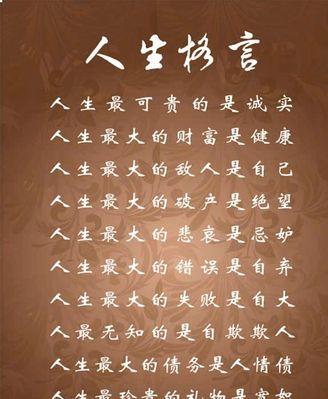 人生格言
人生最可贵的是诚实
人生最大的财富是健康
人生最大的敌人是自己
人生最大的破产是绝望
人生最大的悲哀是忌妒
人生最大的错误是自弃
人生最大的失败是自大
人最无知的是自欺欺人
人生最大的债务是人情债
人生最珍贵的礼物是宽恕